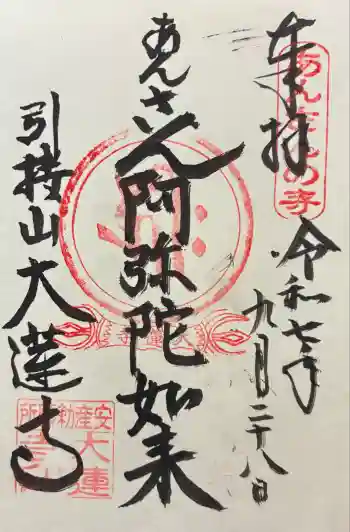 奉拝
あんざんの寺
令和七年
九月二十八日
あんさん阿弥陀如来
引接山大蓮寺
安産勅願所
大蓮寺